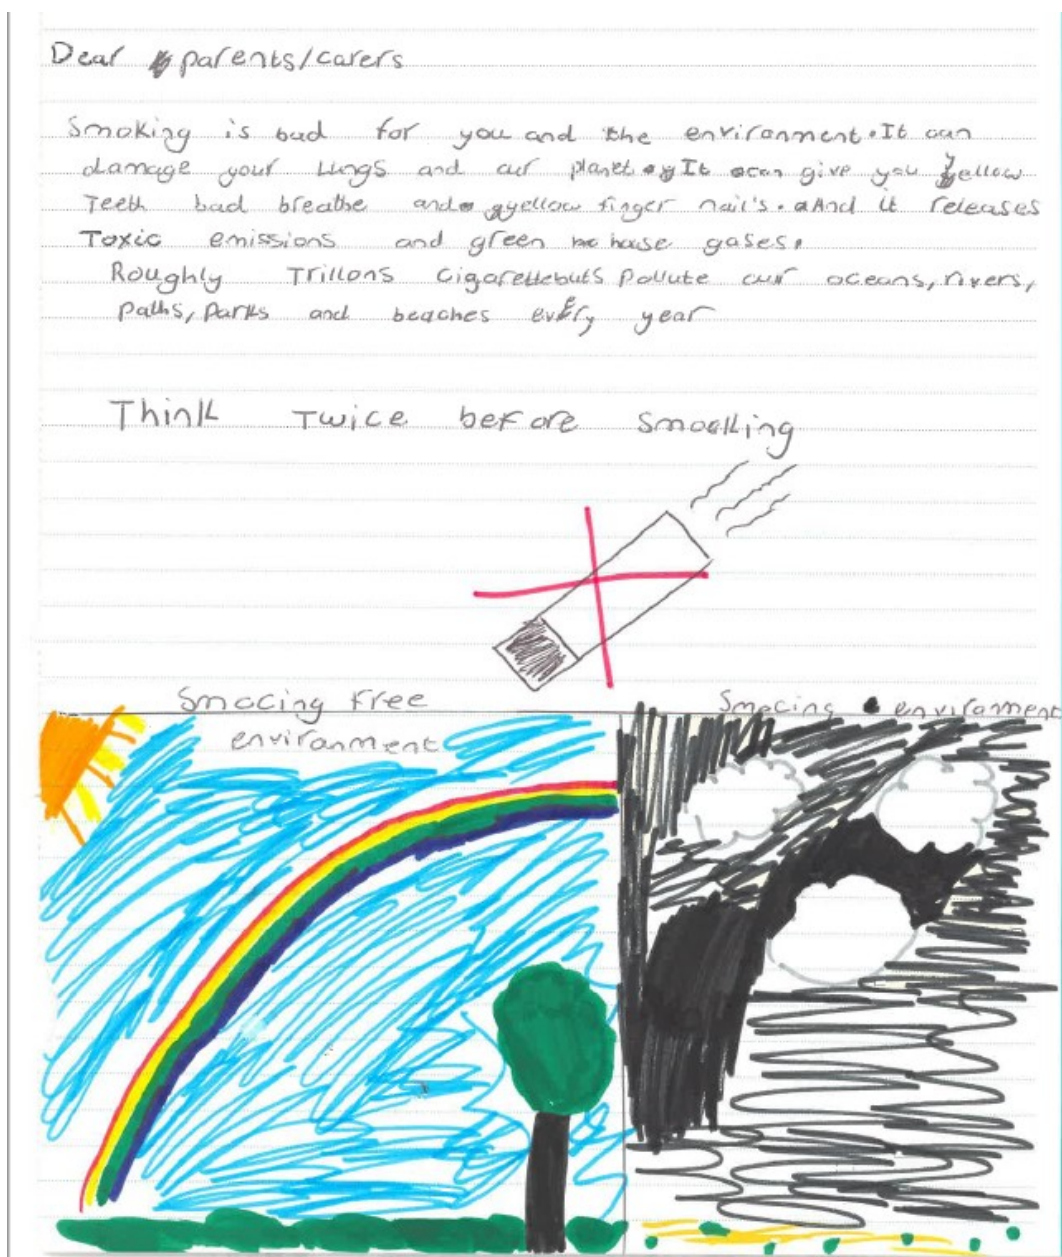 Dear parents/carers
Smoking is bad for you and the environment. It can
damage your Lungs and our planet. It can give you yellow
Teeth bad breathe and yellow finger nail's. And it releases
Toxic emissions and green house gases.
Roughly Trillons Cigarettebuts Pollute our oceans, rivers,
Paths, Parks and beaches every year
Think Twice before Smocking
Smocing Free
environment
Smocing environment